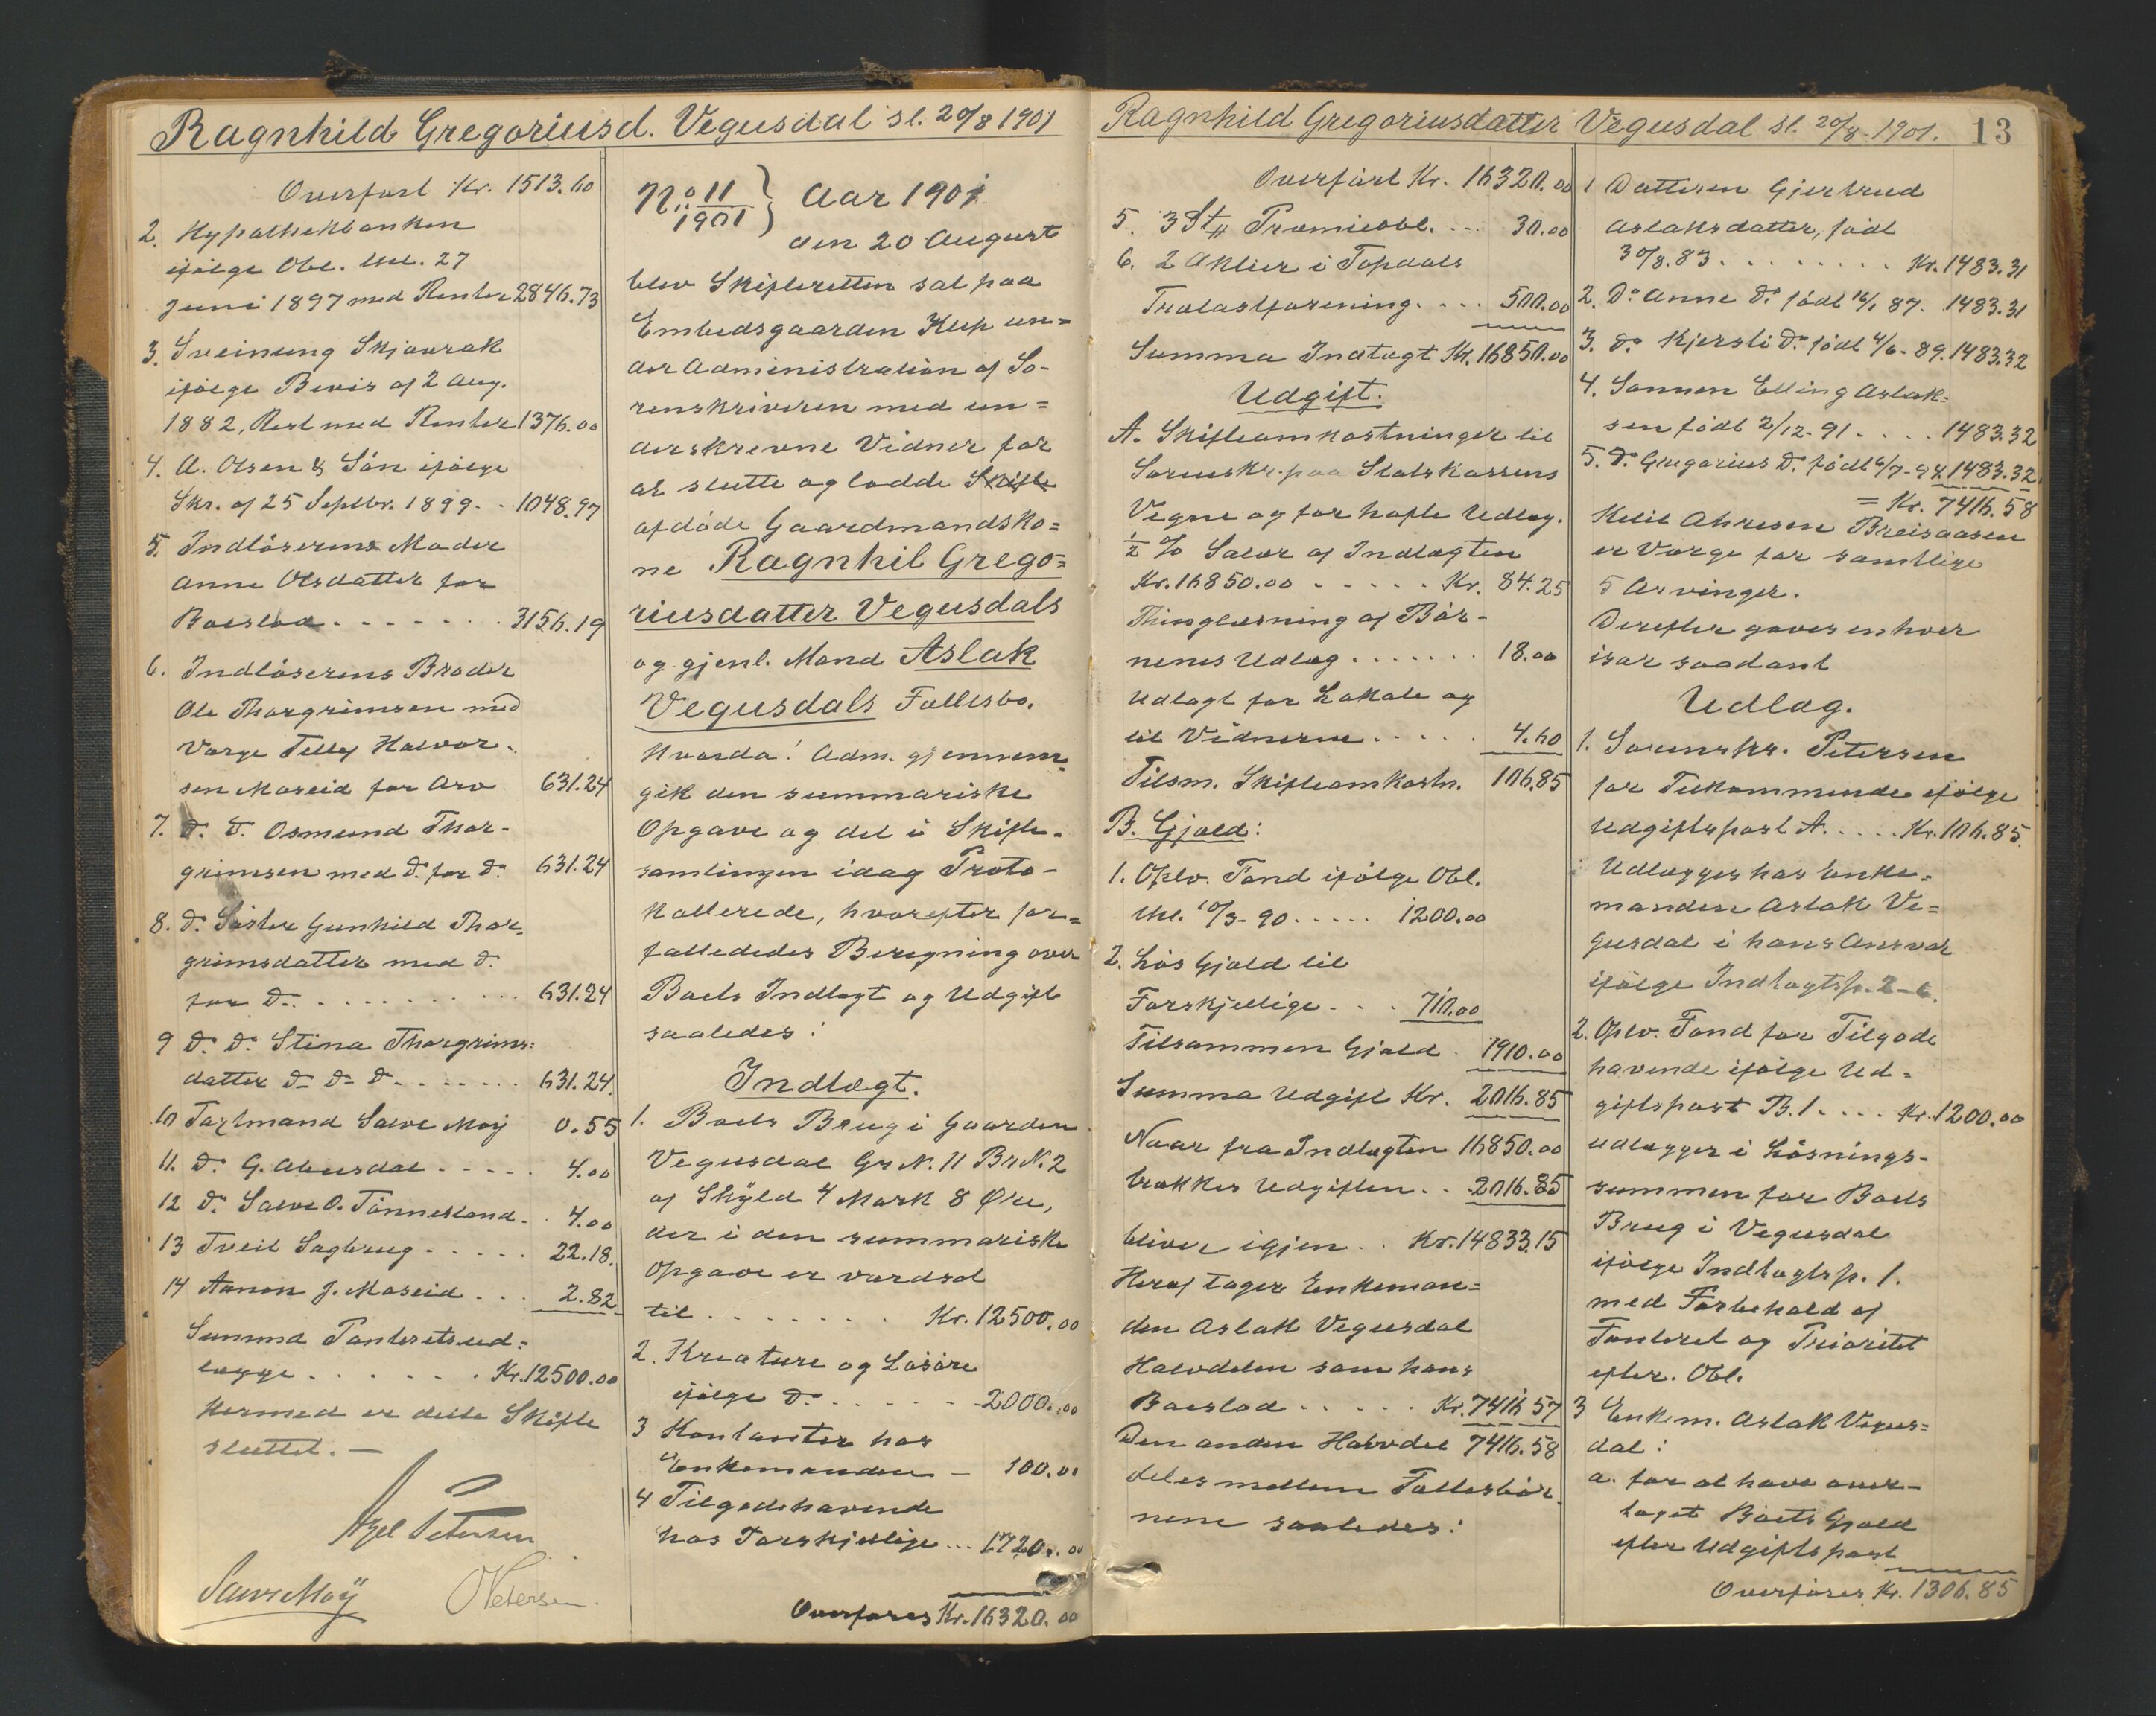 Ragnhild Gregoriusd. Vegusdal sl. 20/8 1901
Overført Kr. 1513.60
2. Hypothekbanken
ifølge Obl. thl. 27
Juni 1897 med Renter 2846.73
3. Sveinung Skjævrak
ifølge Bevis af 2 Aug.
1882, Rest med Renter 1376.00
4. A. Olsen & Søn ifølge
Skr. af 25 Septbr. 1899. . 1048.97
5. Indløserens Moder
Anne Olsdatter for
Boeslod . . . . . . . 3156.19
6. Indløserens Broder
Ole Thorgrimsen med
Værge Tellef Halvor-
sen Moseid for Arv 631.24
7. Do. Do. Osmund Thor-
grimsen med Do. for Do. 631.24
8. Do. Søster Gunhild Thor-
grimsdatter med Do.
for Do. . . . . . . . . . . 631.24
9 Do. Do. Stina Thorgrims:
datter Do. Do. Do. . . . . . . 631.24.
10 Taxtmand Salve Moÿ 0.55
11. Do. G. Abusdal . . . . . 4.00
12 Do. Salve O. Tønnesland . . 4.00
13 Tveit Sagbrug . . . . . 22.18.
14 Aanon J. Moseid . . . 2.82
Summa Panteretsud-
lægge . . . . . . Kr. 12500.00
Hermed er dette Skifte
sluttet. —
Axel Petersen
Salve Moÿ O Petersen.
No. 11/1901 } Aar 1901
den 20 August
blev Skifteretten sat paa
Embedsgaarden Klep un=
der Administration af So-
renskriveren med un=
derskrevne Vidner for
at slutte og lodde Skifte
afdøde Gaardmandsko=
ne Ragnhil Grego=
riusdatter Vegusdals
og gjenl. Mand Aslak
Vegusdals Fællesbo.
Hvorda! Adm. gjennem-
gik den summariske
Opgave og det i Skifte-
samlingen idag Proto-
kollerede, hvorefter for=
fattededes Beregning over
Boets Indtægt og Udgift
saaledes:
Indtægt.
1. Boets Brug i Gaarden
Vegusdal Gr N. 11 Br N. 2
af Skÿld 4 Mark 8 Øre,
der i den summariske
Opgave er værdsat
til . . . . . . . . Kr. 12500.00
2. Kreature og Løsøre
ifølge Do. . . . . . . 2000.00
3 Kontanter hos
Enkemanden — 100.00
4 Tilgodehavende
hos Forskjellige ... 1720.00
Overføres Kr. 16320.00
Ragnhild Gregoriusdatter Vegusdal sl. 20/8-1901. 13
Overført Kr. 16320.00
5. 3 St# Præmieobl. . . . 30.00
6. 2 Aktier i Topdals
Trælastforening. . . . 500.00
Summa Indtægt Kr. 16850.00
Udgift.
A. Skifteomkostninger til
Sorenskr. paa Statskassens
Vegne og for hafte Udlæg.
1/2 % Salær af Indtægten
Kr. 16850.00 . . . . . Kr. 84.25
Thinglæsning af Bør-
nenes Udlæg . . . . . . . 18.00
Udlagt for Lokale og
til Vidnerne . . . . . 4.60
Tilsm. Skifteomkostn. 106.85
B. Gjæld:
1. Oplv. Fond ifølge Obl.
thl. 10/3-90 . . . . . 1200.00
2. Løs Gjæld til
Forskjellige . . . 710.00
Tilsammen Gjæld . 1910.00
Summa Udgift Kr. 2016.85
Naar fra Indtægten 16850.00
trækkes Udgiften . . 2016.85
bliver igjen . . Kr. 14833.15
Heraf tager Enkeman=
den Aslak Vegusdal
Halvdelen som hans
Boeslod . . . . . Kr. 7416.57
Den anden Halvdel 7416.58
deles mellem Fællesbør
nene saaledes:
1 Datteren Gjertrud
Aslaksdatter, født
30/8.83 . . . . . . . . Kr. 1483.31
2. Do. Anne Do. født 16/1 87. 1483.31
3. Do. Kjersti Do. født 4/6-89. 1483.32
4. Sønnen Elling Aslak=
sen født 2/12-91 . . . . 1483.32
5. Do. Gregorius Do. født 6/7-94 1483.32
= Kr. 7416.58
Ketil Ahresen Breisaasen
er Værge for samtlige
5 Arvinger.
Derefter gaves enhver
især saadant
Udlæg.
1. Sorenskr. Petersen
for Tilkommende ifølge
Udgiftspost A. . . . . Kr. 106.85.
Udlægges hos Enke-
manden Aslak Ve=
gusdal i hans Ansvar
ifølge Indtægtsp. 2-6.
2. Oplv. Fond for Tilgode
havende ifølge Ud-
giftspost B. 1 . . . . Kr. 1200.00
Udlægges i Løsnings-
summen for Boets
Brug i Vegusdal
ifølge Indtægtsp. 1.
med Forbehold af
Panteret og Prioritet
efter. Obl.
3 Enkem. Aslak Vegus=
dal:
a. for at have over-
taget Boets Gjæld
efter Udgiftspost
Overføres Kr. 1306.85